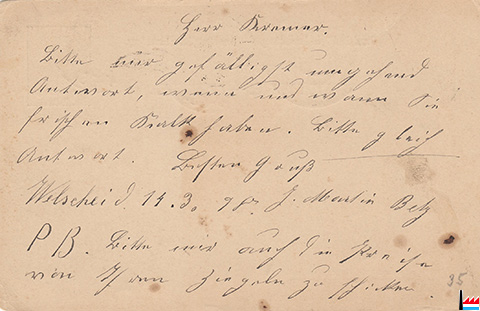 Herr Kremer.
Bitte mir gefälligst umgehend
Antwort, wenn und wann Sie
frischen Kalk haben. Bitte gleich
Antwort. Besten Gruß
Welscheid 14.3. 98. J. Martin Betz
P B. Bitte mir auch die Preise
von Ihren Ziegeln zu schicken.
35